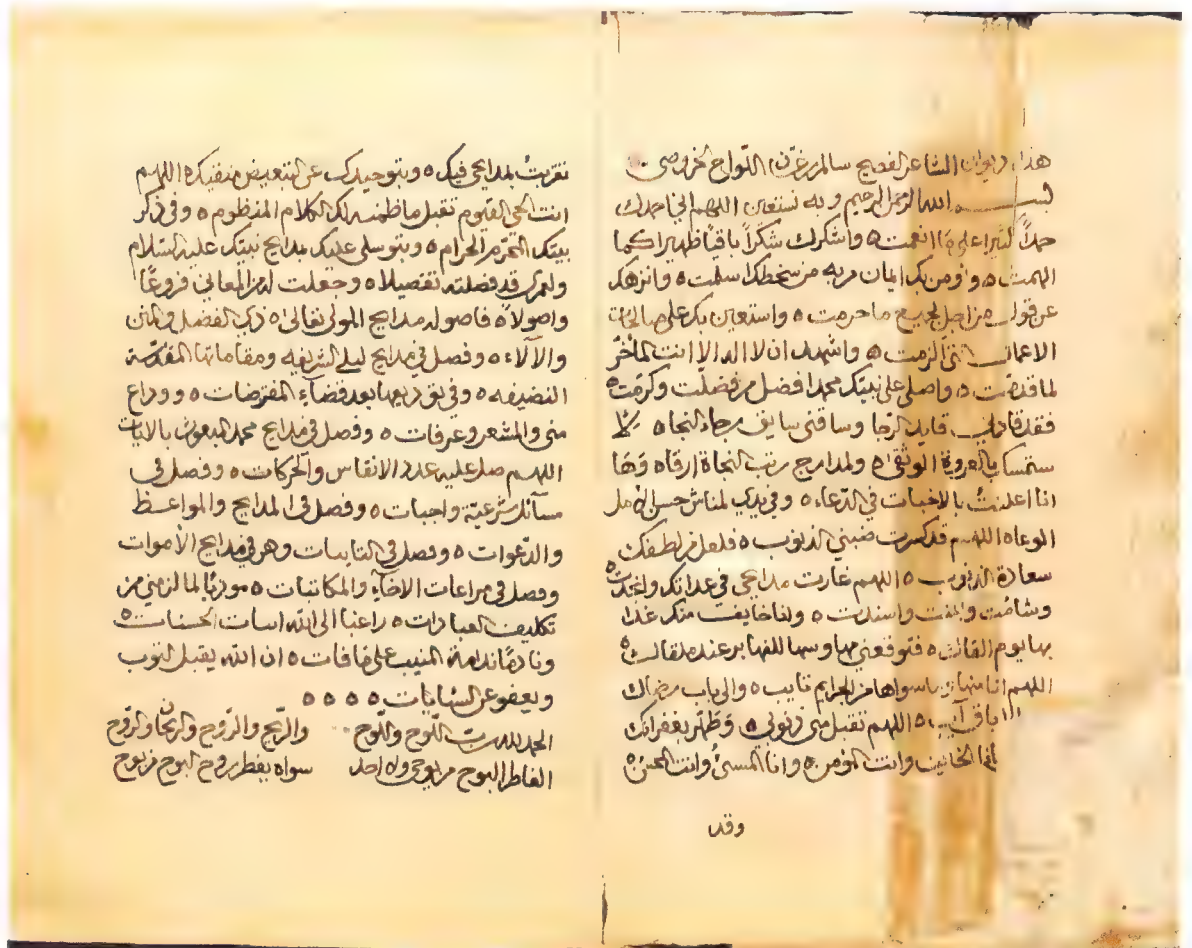 هذا ديوان الشاعر الفصيح سالم بن غسان اللواح الخروصي
بسم الله الرحمن الرحيم وبه نستعين اللهم اني احمدك
حمداً كثيرا على ما انعمت ٥ واشكرك شكراً باقياً ظهيرا كما
الهمت ٥ واومن بك ايمان من به من سخطك اسلمت ٥ وانزهك
عن قول من اجل لجميع ما حرمت ٥ واستعين بك على صالحات
الاعمال التي الزمت ٥ واشهد ان لا اله الا انت المأخر
لما قدمت ٥ واصلي على نبيك محمد افضل من فضلت وكرمت ٥
فقد قادني قايد الرجا وساقني سايق رجاء النجاه ٥
ستمسك بالعروة الوثقى ٥ ولمدارج رتب النجاة ارقاه وها
انا اعلنت بالاخبات في الدعاء ٥ وفي يدي حسن الامل
الوعاه اللهم قد كسرت ضبني الذنوب ٥ فلعل من لطفك
سعادة الذنوب ٥ اللهم غارت مدايحي في عداتك وانجدت ٥
وشامت وايمنت واسندت ٥ وانا خايف منك غدا
بها يوم القاك ٥ فتوقفني بها وسها للفها بر عند ملقاك ٥
اللهم انا منها وما سواها من الجرايم تايب ٥ والى باب رضاك
يا باقي آيب ٥ اللهم تقبل مني ذنوبي ٥ وطهر بغفرانك
انا الخايف وانت المؤمن ٥ وانا المسئ وانت المحسن ٥
وقد
تقربت بمدايحي فيك ٥ وبتوحيدك عن التبعيض منفيك ٥ اللهم
انت الحي القيوم تقبل ما نظمته لك الكلام المنظوم ٥ وفي ذكر
بيتك المحرم الحرام ٥ وبتوسلي عليك مدايح نبيك عليه السلام
ولعمري قد فصلته تفصيلا ٥ وجعلت له من المعاني فروعاً
واصولا ٥ فاصوله مدايح المولى تعالى ٥ ذي الفضل والمنن
والآلاء ٥ وفصل في مدايح ليلى الشريفه ومقاماتها المقدسة
النضيفه ٥ وفي توديعها بعد قضآء المفترضات ٥ ووداع
منى والمشعر وعرفات ٥ وفصل في مدايح محمد المبعوث بالايات
اللهم صل عليه عدد الانفاس والحركات ٥ وفصل في
مسآئل شرعية واجبات ٥ وفصل في المدايح والمواعظ
والدعوات ٥ وفصل في التابيات وهو في مدايح الأموات
وفصل في مراعات الاخآء والمكاتبات ٥ موديًا لما لزمني من
تكليف العبادات ٥ راغبا الى الله اسات الحسنات ٥
ونادمًا ندامة المنيب على ما فات ٥ ان الله يقبل التوب
ويعفو عن السايات ٥ ٥ ٥ ٥
الحمد لله رب اللوح واللوح والريح والروح والريحان والروح
الفاطر البوح من يوحي ولا احد سواه يفطر روح البوح من بوح